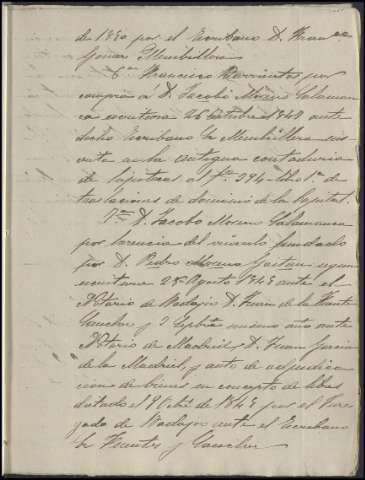 de 1850 por el Escribano D. Fran.co
Gomez Membrillera
6.a Francisco Barrientos por
compra a D. Jacobo Moreno Salaman
ca escritura 26 Octubre 1849 ante
dicho Escribano Membrillera ins-
crita en la antigua contaduria
de hipotecas al f.º 294 libro 1.º de
traslaciones de dominio de la Capital.
7.a D. Jacobo Moreno Salamanca
por herencia del vinculo fundado
por D. Pedro Moreno Gaitan segun
escritura 28 Agosto 1843 ante el
Notario de Badajoz D. Juan de la Fuente
Sanchez y 2 Sepbre mismo año ante
Notario de Madrid D. Juan Garcia
de la Madrid, y auto de adjudica
cion de bienes en concepto de libres
dictado el 9 Octbre de 1843 por el Juz
gado de Badajoz ante el Escribano
Fuentes y Sanchez